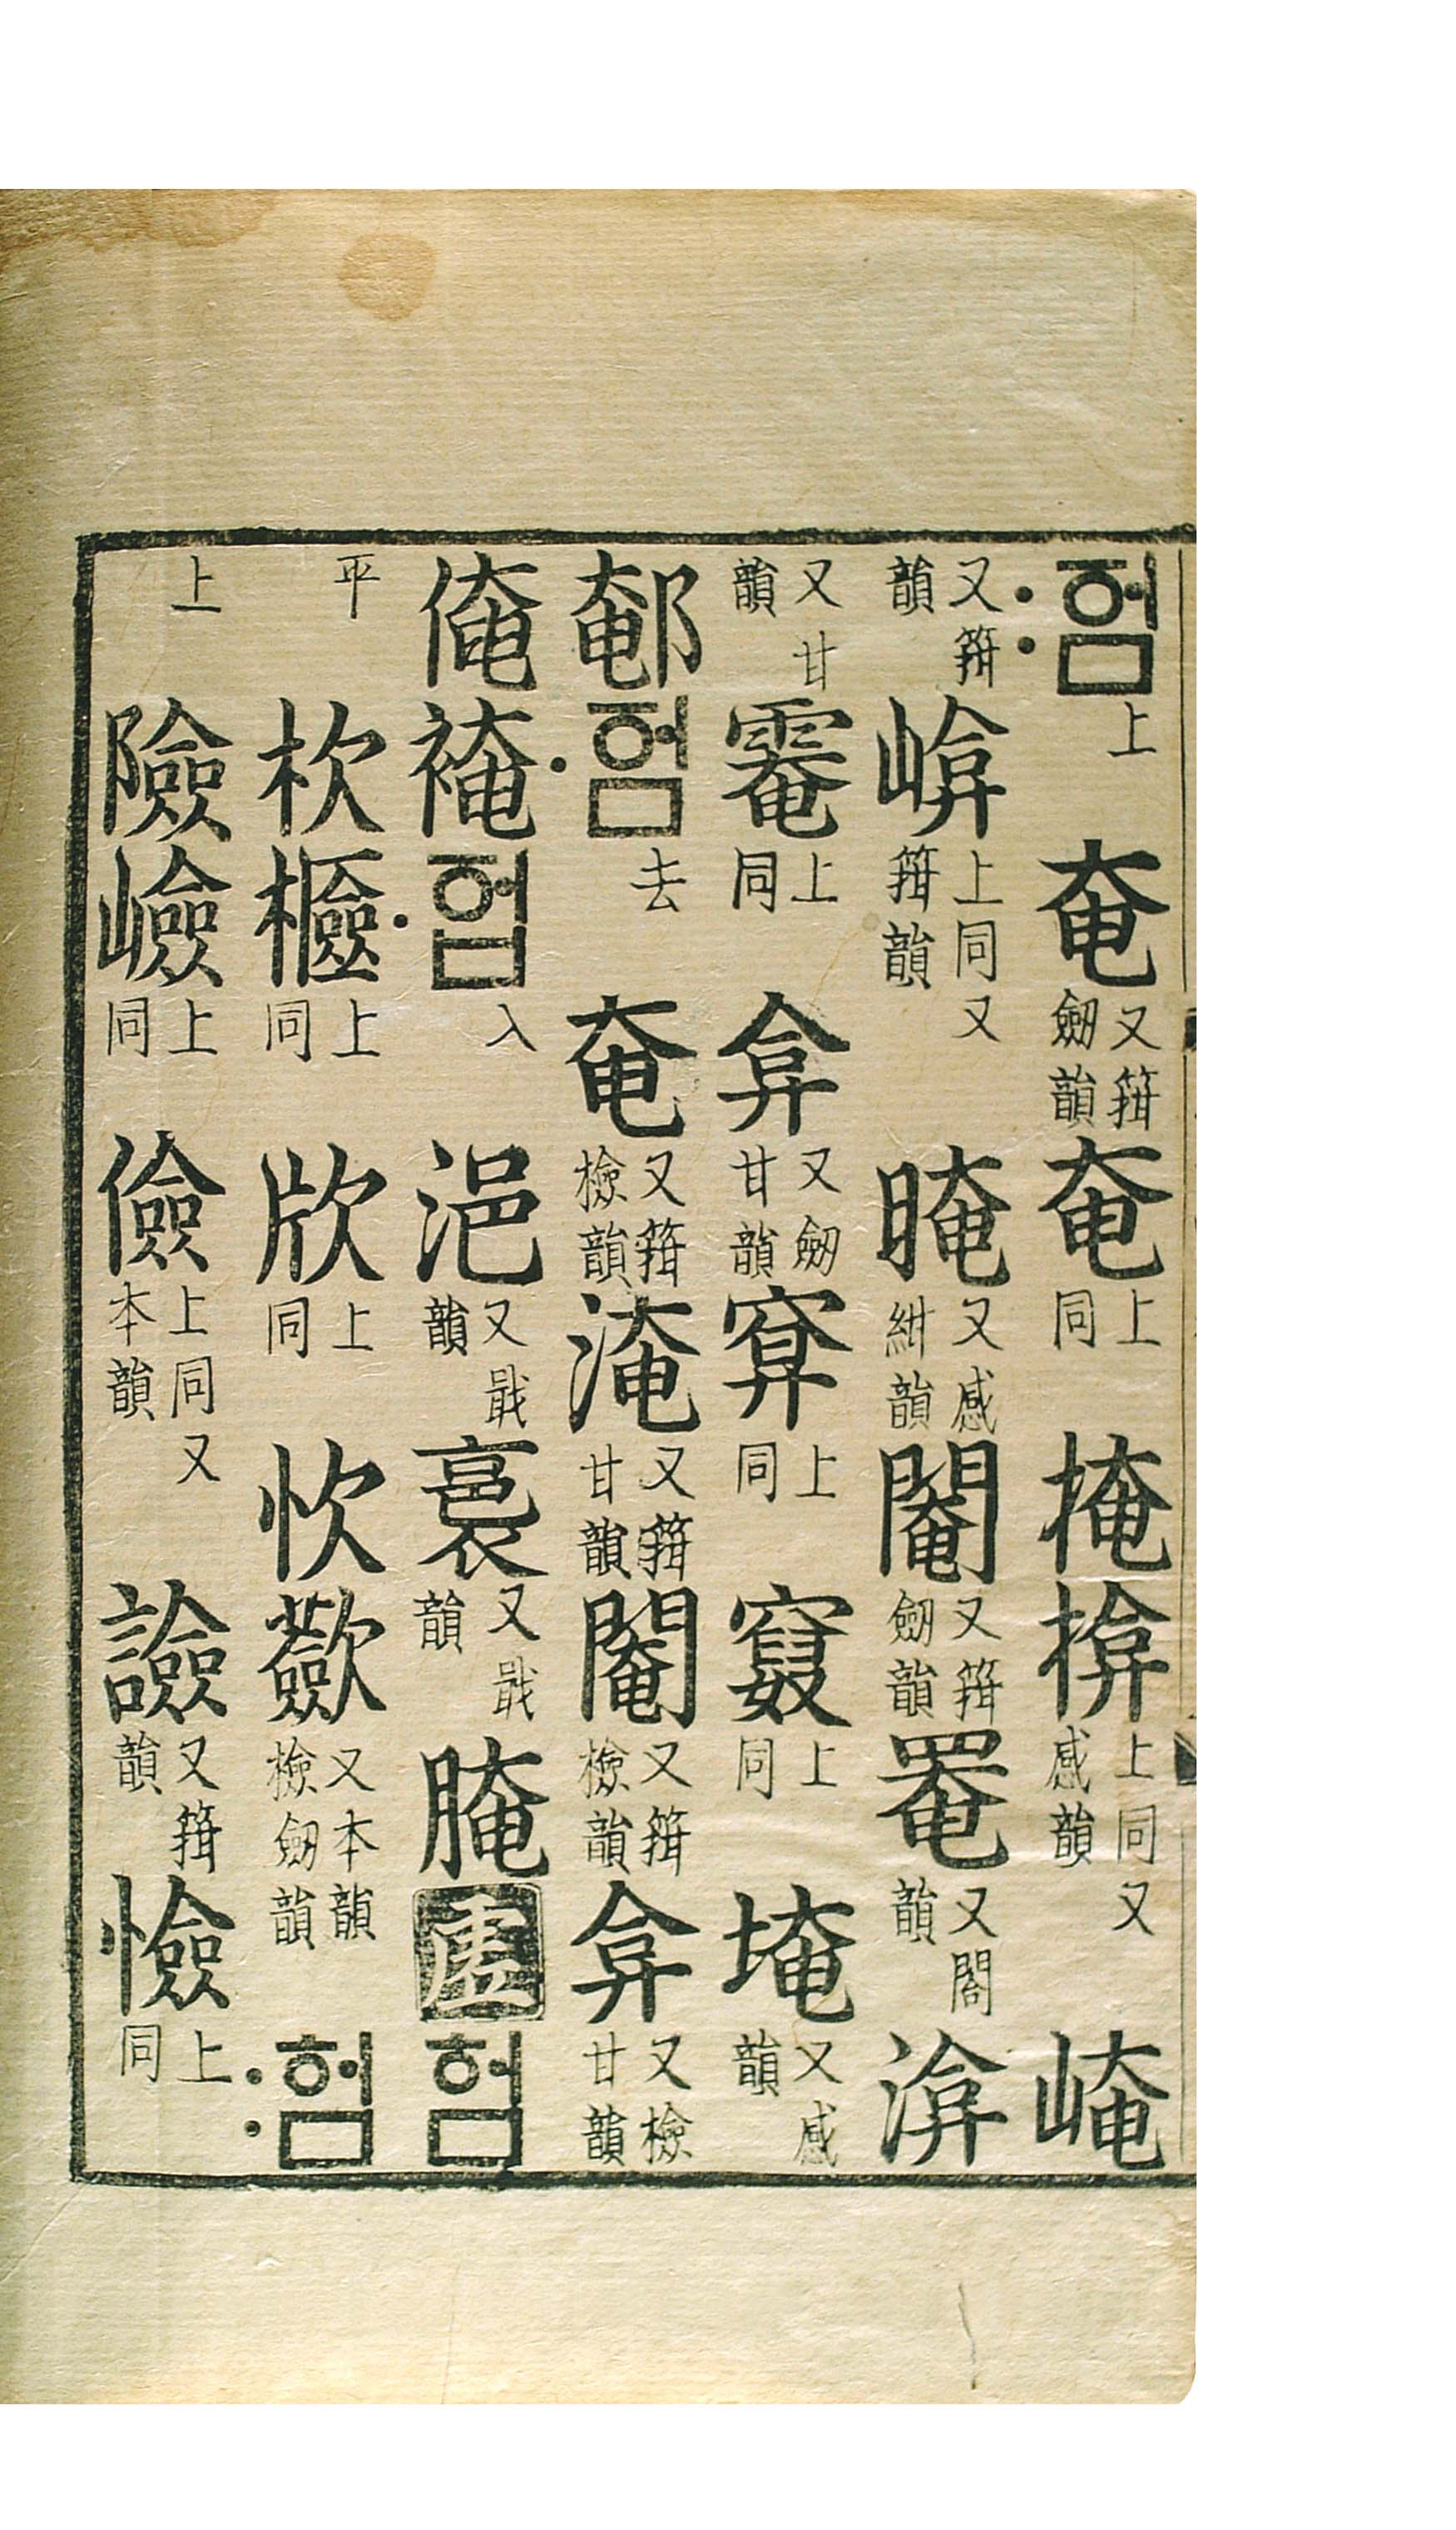 〯ᅙᅥᆷ上 奄又箝劒韻 奄上同 掩 揜上同又感韻 崦
又箝韻 ⿰山弇上同又箝韻 晻又感紺韻 閹又箝劒韻 罨又閤韻 渰
又甘韻 ⿱雨奄上同 弇又劒甘韻 ⿱穴弇上同 上同 埯又感韻
⿰奄阝 〮ᅙᅥᆷ去 奄又箝檢韻 淹又箝甘韻 閹又箝檢韻 弇又檢甘韻
俺 裺 〮ᅙᅥᆸ入 浥又戢韻 裛又戢韻 腌 虛 험
平 杴 上同 ⿰片欠上同 忺 又本韻檢劒韻 〯험
上 險 嶮上同 儉上同又本韻 譣又箝韻 憸上同